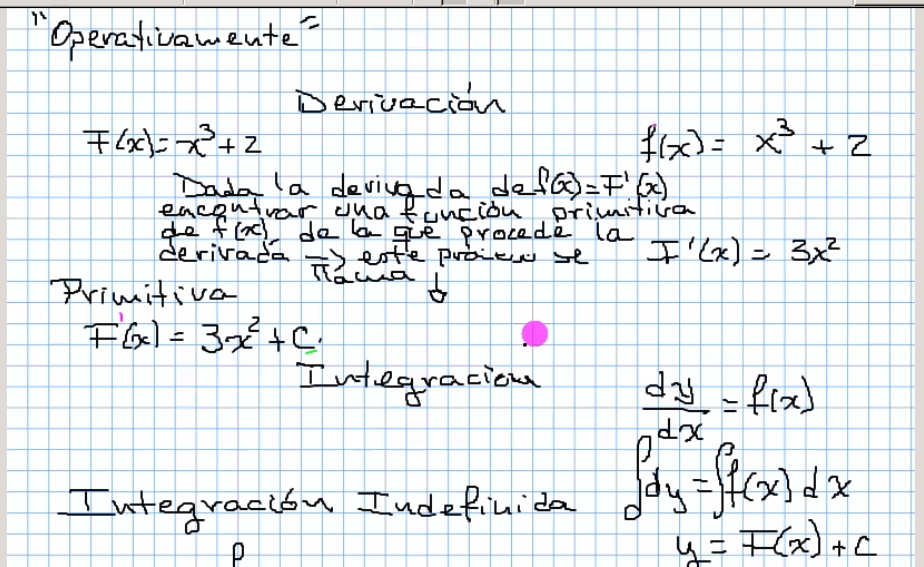 "Operativamente"
Derivación
F(x)=x³+2
f(x)= x³ + 2
Dada la derivada de f(x)=F'(x)
encontrar una función primitiva
de f(x) de la que procede la
derivada → este proceso se
llama ↓
F'(x) = 3x²
Primitiva
F'(x) = 3x² + C.
Integracion
dy/dx = f(x)
∫dy = ∫f(x) dx
y = F(x) + C
Integración Indefinida